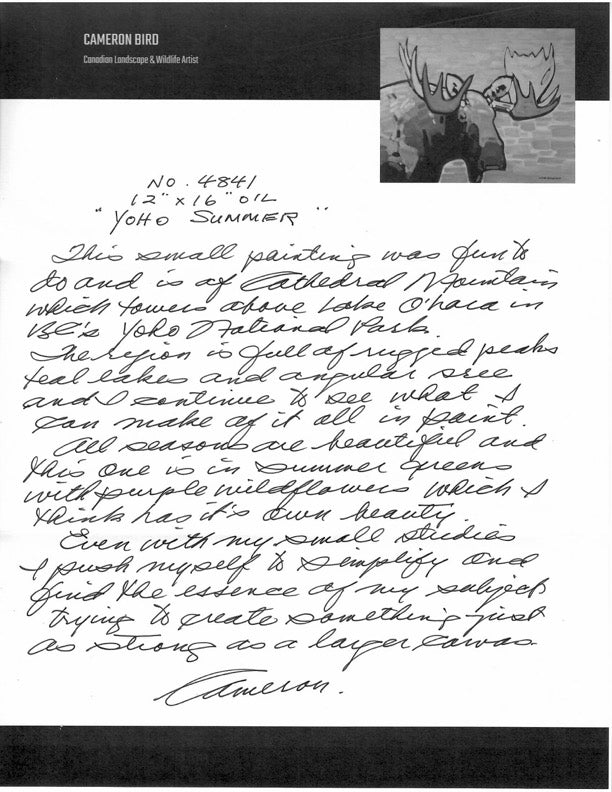 CAMERON BIRD
Canadian Landscape & Wildlife Artist
NO. 4841
12" x 16" OIL
"YOHO SUMMER"
This small painting was fun to
do and is of Cathedral Mountain
which towers above Lake O'hara in
BC's Yoho National Park.
The region is full of rugged peaks
teal lakes and angular scree
and I continue to see what I
can make of it all in paint.
All seasons are beautiful and
this one is in summer greens
with purple wildflowers which I
think has it's own beauty.
Even with my small studies
I push myself to simplify and
find the essence of my subject
trying to create something just
as strong as a larger canvas.
Cameron.